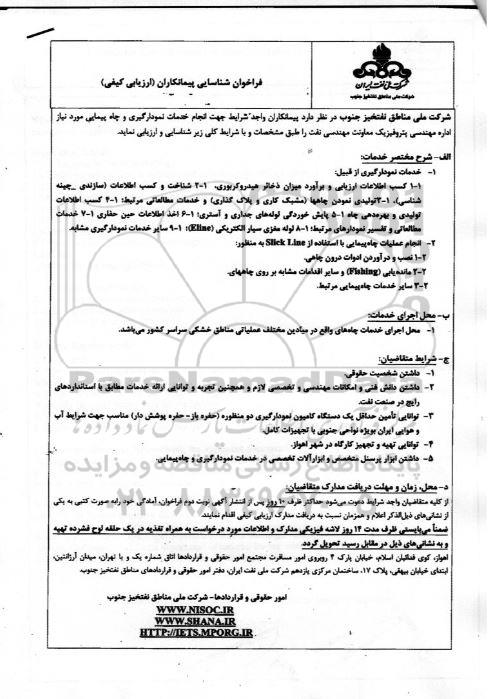 شرکت ملی نفت ایران
شرکت ملی مناطق نفتخیز جنوب
فراخوان شناسایی پیمانکاران (ارزیابی کیفی)
شرکت ملی مناطق نفتخیز جنوب در نظر دارد پیمانکاران واجد شرایط جهت انجام خدمات نمودارگیری و چاه پیمایی مورد نیاز
اداره مهندسی پتروفیزیک معاونت مهندسی نفت را طبق مشخصات و با شرایط کلی زیر شناسایی و ارزیابی نماید.
الف- شرح مختصر خدمات:
۱- خدمات نمودارگیری از قبیل:
۱-۱ کسب اطلاعات ارزیابی و برآورد میزان ذخائر هیدروکربوری، ۲-۱ شناخت و کسب اطلاعات (سازندی _چینه
شناسی)، ۳-۱تولیدی نمودن چاهها (مشبک کاری و پلاگ گذاری) و خدمات مطالعاتی مرتبط؛ ۴-۱ کسب اطلاعات
تولیدی و بهره‌دهی چاه ۵-۱ پایش خوردگی لوله‌های جداری و آستری؛ ۶-۱ اخذ اطلاعات حین حفاری ۷-۱ خدمات
مطالعاتی و تفسیر نمودارهای مرتبط؛ ۸-۱ لوله مغزی سیار الکتریکی (Eline)؛ ۹-۱ سایر خدمات نمودارگیری مشابه.
۲- انجام عملیات چاه‌پیمایی با استفاده از Slick Line به منظور:
۱-۲ نصب و درآوردن ادوات درون چاهی.
۲-۲ مانده‌یابی (Fishing) و سایر اقدامات مشابه بر روی چاههای.
۳-۲ سایر خدمات چاه‌پیمایی مرتبط.
ب- محل اجرای خدمات:
۱- محل اجرای خدمات چاه‌های واقع در میادین مختلف عملیاتی مناطق خشکی سراسر کشور می‌باشد.
ج- شرایط متقاضیان:
۱- داشتن شخصیت حقوقی.
۲- داشتن دانش فنی و امکانات مهندسی و تخصصی لازم و همچنین تجربه و توانایی ارائه خدمات مطابق با استانداردهای
رایج در صنعت نفت.
۳- توانایی تأمین حداقل یک دستگاه کامیون نمودارگیری دو منظوره (حفره باز- حفره پوشش دار) مناسب جهت شرایط آب
و هوایی ایران بویژه نواحی جنوبی با تجهیزات کامل.
۴- توانایی تهیه و تجهیز کارگاه در شهر اهواز.
۵- داشتن ابزار پرسنل متخصص و ابزارآلات تخصصی در خدمات نمودارگیری و چاه‌پیمایی.
د- محل، زمان و مهلت دریافت مدارک متقاضیان:
از کلیه متقاضیان واجد شرایط دعوت می‌شود حداکثر ظرف ۱۰ روز پس از انتشار آگهی نوبت دوم فراخوان، آمادگی خود را به صورت کتبی به یکی
از نشانی‌های ذیل‌الذکر اعلام و همزمان نسبت به دریافت مدارک ارزیابی کیفی اقدام نمایند.
ضمناً می‌بایستی ظرف مدت ۱۴ روز لاشه فیزیکی مدارک و اطلاعات مورد درخواست به همراه تغذیه در یک حلقه لوح فشرده تهیه
و به نشانی‌های ذیل در مقابل رسید تحویل گردد.
اهواز، کوی فدائیان اسلام، خیابان پارک ۴ روبروی امور مسافرت مجتمع امور حقوقی و قراردادها اتاق شماره یک و یا تهران، میدان آرژانتین،
ابتدای خیابان بیهقی، پلاک ۱۷، ساختمان مرکزی یازدهم شرکت ملی نفت ایران، دفتر امور حقوقی و قراردادهای مناطق نفتخیز جنوب.
امور حقوقی و قراردادها- شرکت ملی مناطق نفتخیز جنوب
WWW.NISOC.IR
WWW.SHANA.IR
HTTP://IETS.MPORG.IR